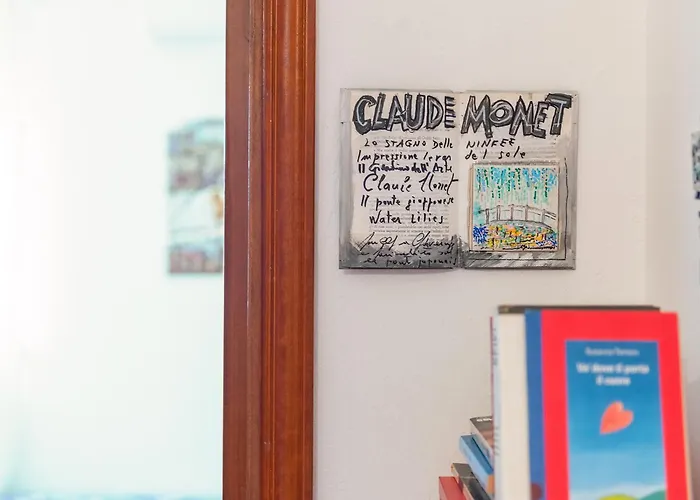 CLAUDE MONET
LO STAGNO delle NINFEE
Impressione levar del sole
Il Giardino dell'Arte
Claude Monet
Il ponte giapponese
Water Lilies
Susanna Tamaro
Va' dove ti porta
il cuore